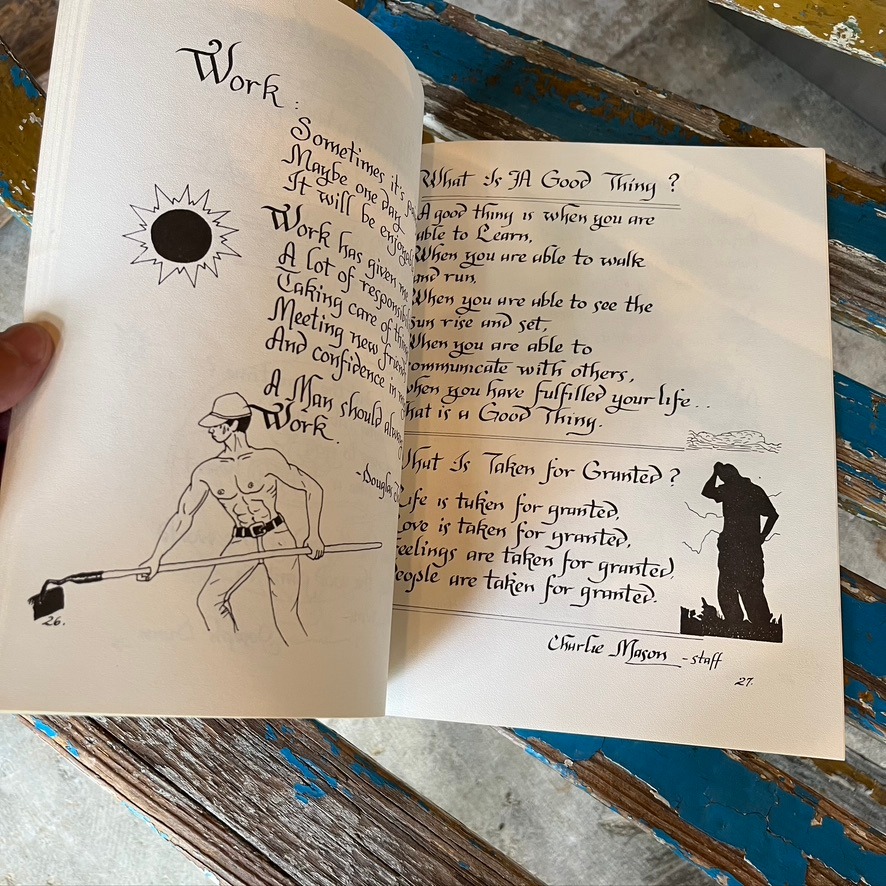 Work:
Sometimes it's
Maybe one day
It will be
Work has given
A lot of
Taking care of
Meeting new
And confidence in
A Man should
Work.
-Douglas
26.
What Is A Good Thing?
A good thing is when you are
able to Learn,
When you are able to walk
and run,
When you are able to see the
sun rise and set,
When you are able to
communicate with others,
when you have fulfilled your life...
that is a Good Thing.
What Is Taken for Granted?
Life is taken for granted,
Love is taken for granted,
Feelings are taken for granted,
People are taken for granted.
Charlie Mason -staff
27.